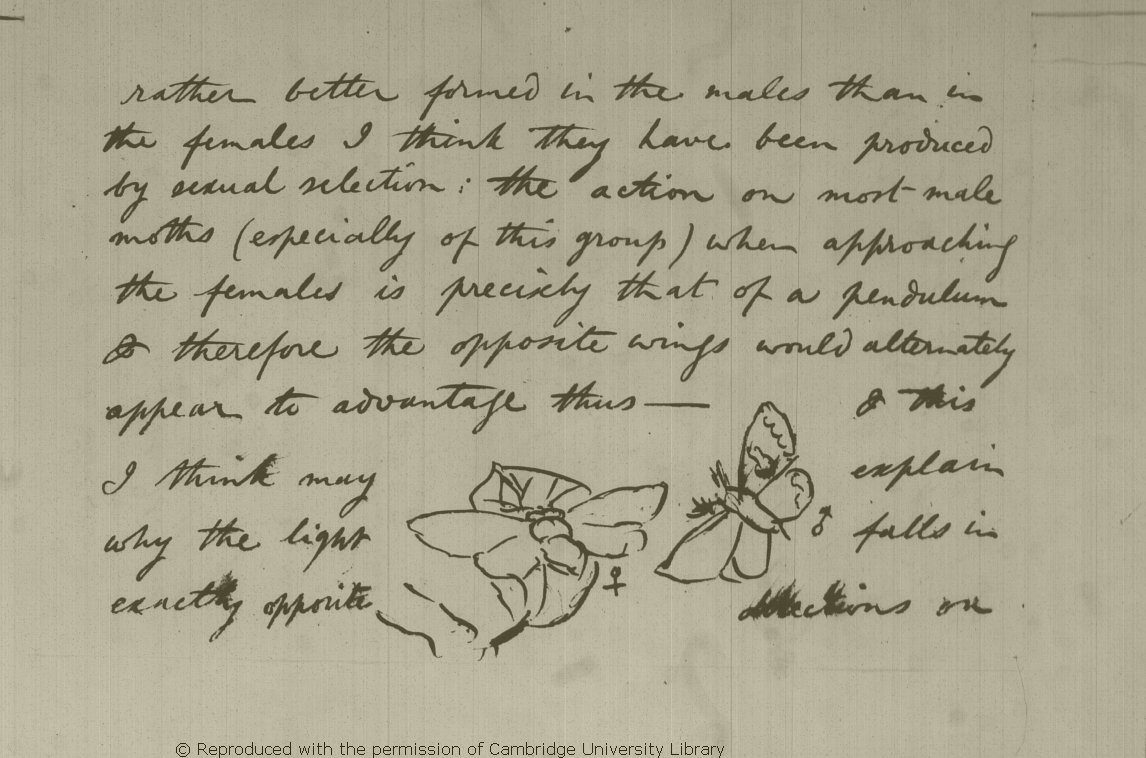 rather better formed in the males than in
the females I think they have been produced
by sexual selection: the action on most male
moths (especially of this group) when approaching
the females is precisely that of a pendulum
& therefore the opposite wings would alternately
appear to advantage thus — & this
I think may explain
♂
why the light falls in
♀
exactly opposite directions on
© Reproduced with the permission of Cambridge University Library